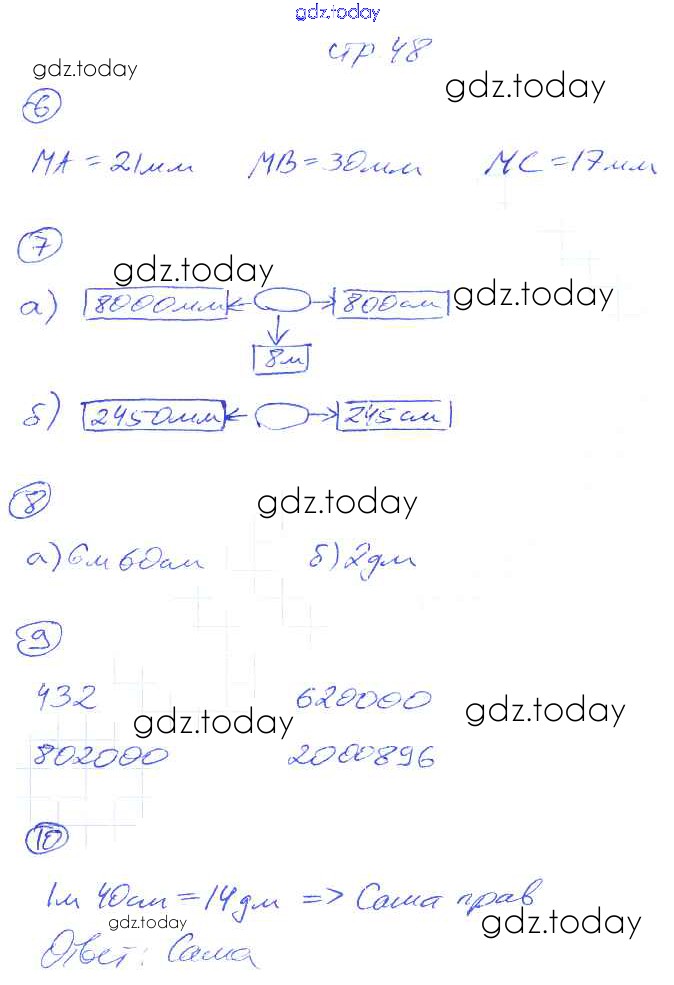 gdz.today
стр. 48
gdz.today
gdz.today
6
MA = 21мм MB = 30мм MC = 17мм
7
gdz.today
gdz.today
а) 8000мм 800см
8м
б) 2450мм 245см
8
gdz.today
а) 6м 60см б) 2дм
9
432 620000
gdz.today
gdz.today
802000 2000896
10
1м 40см = 14дм => Саша прав
gdz.today
gdz.today
Ответ: Саша